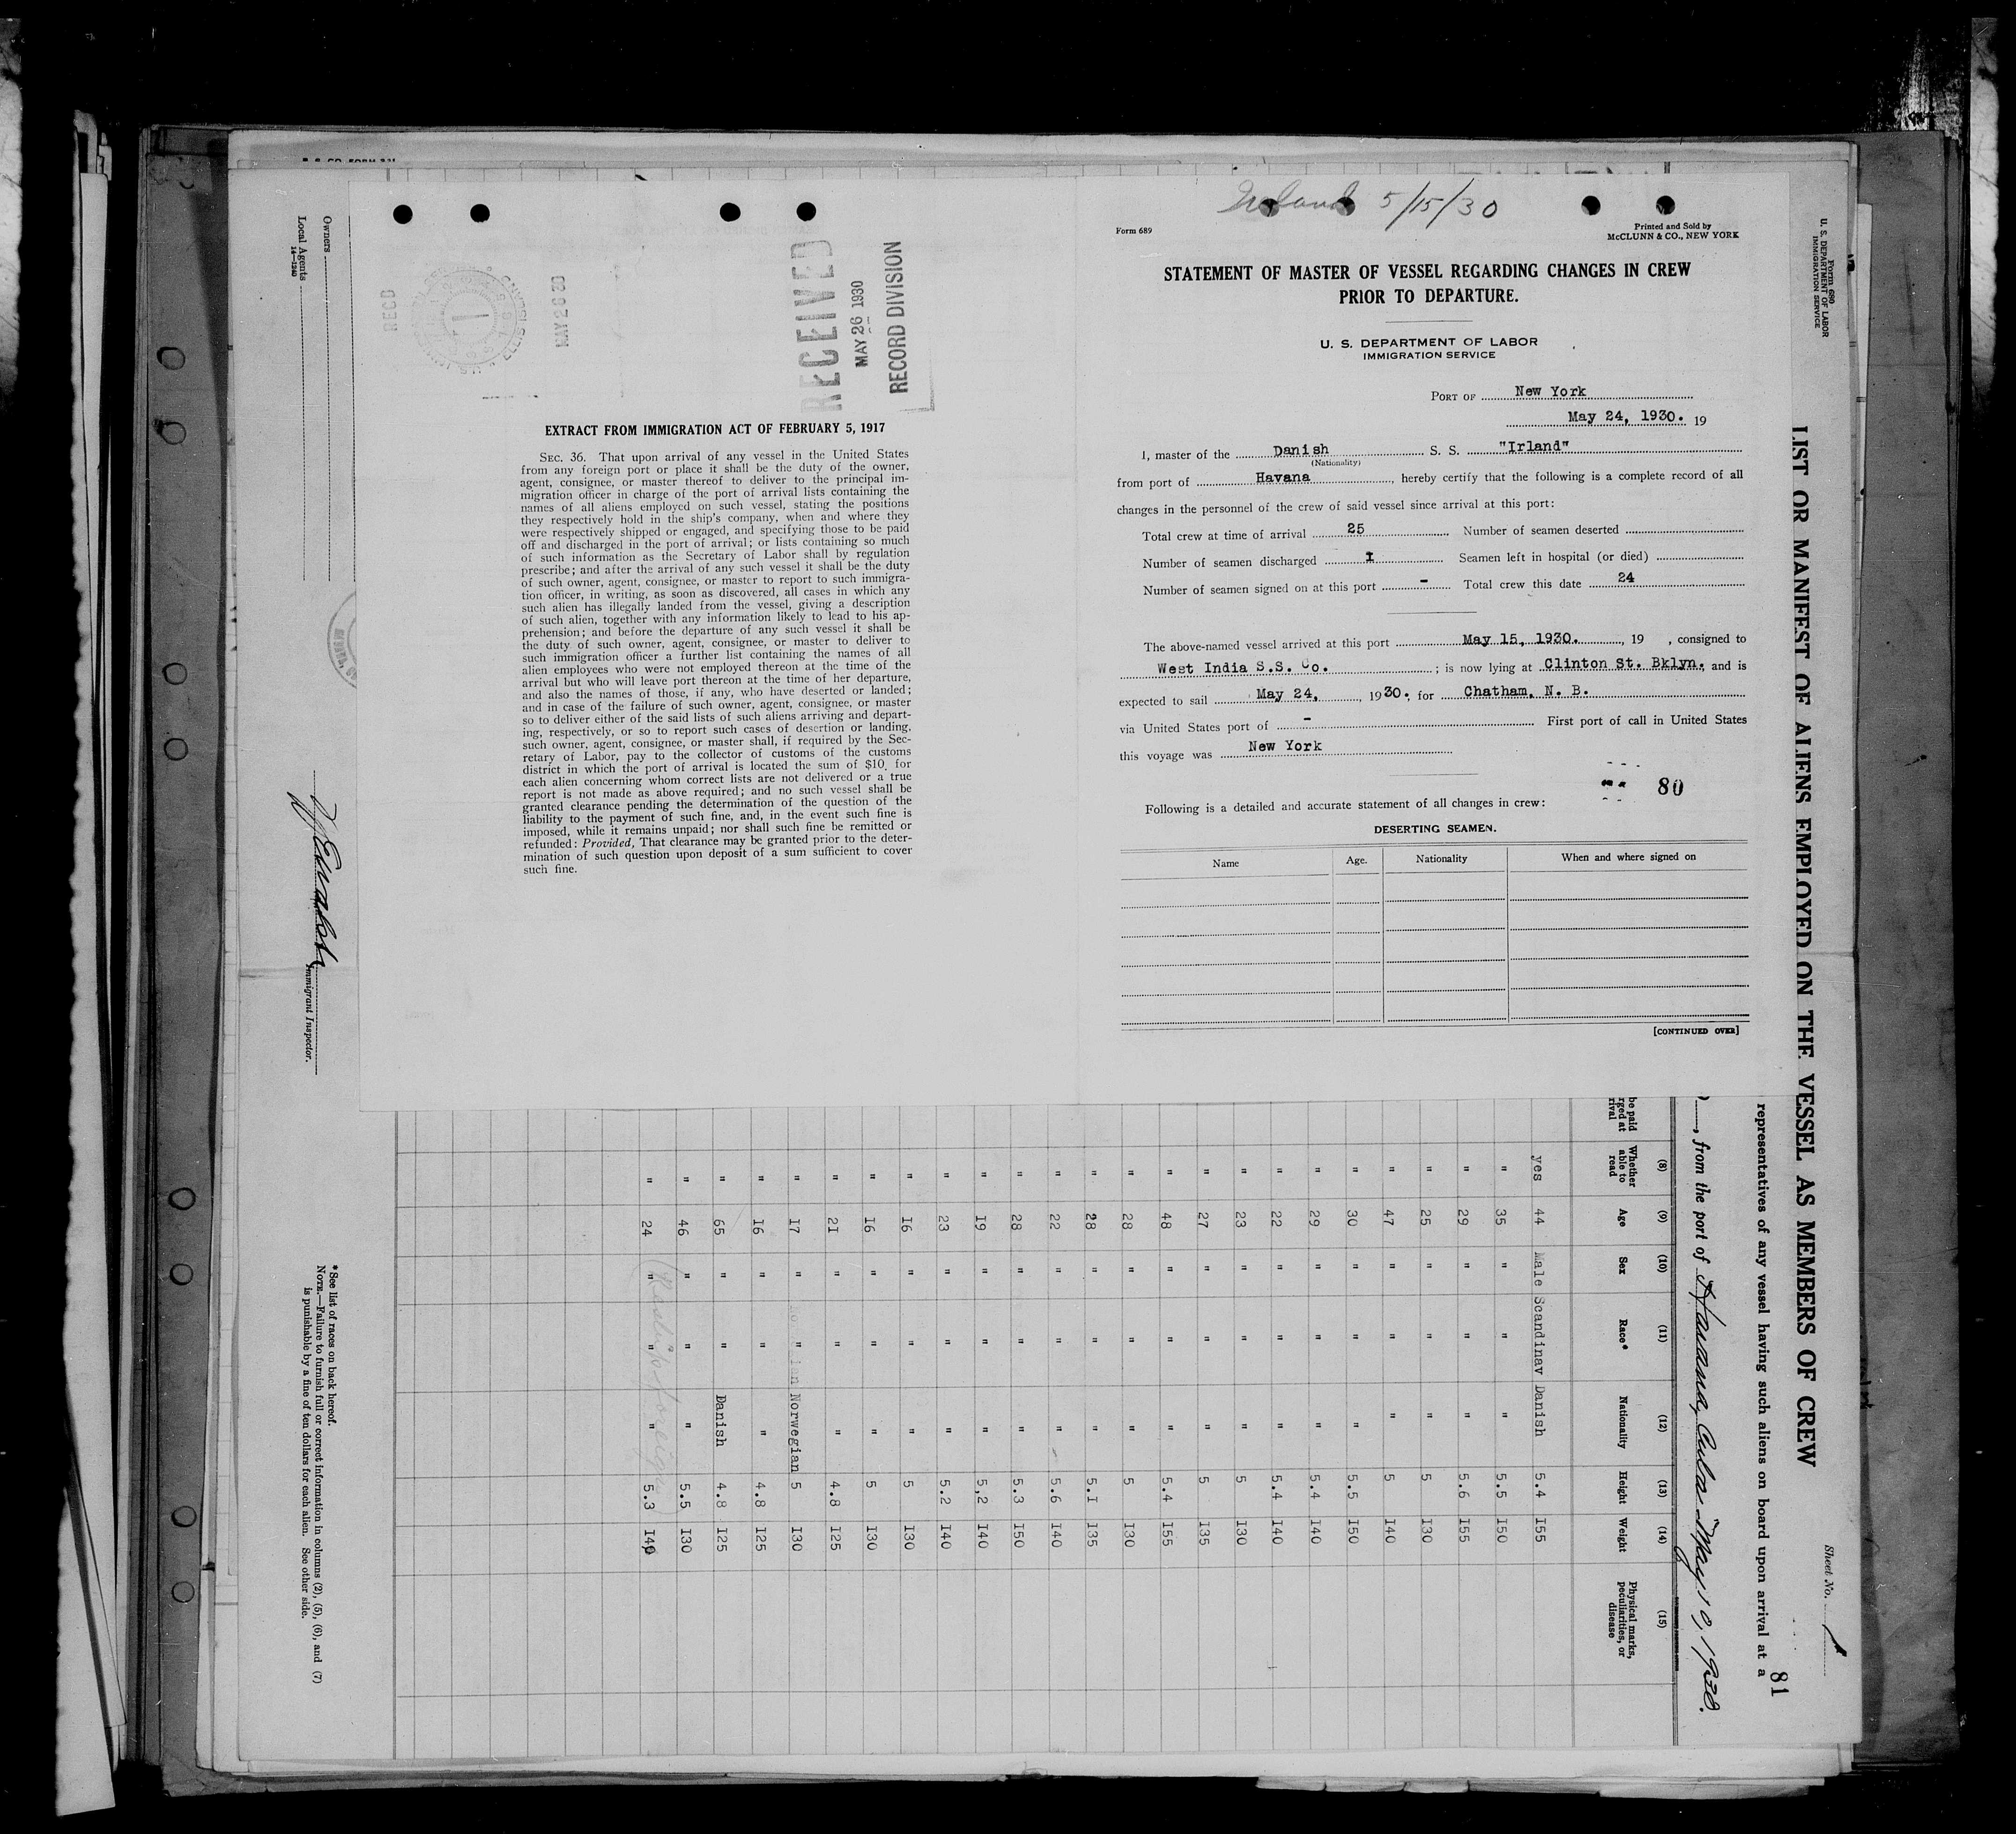 RECD
MAY 26 30
ELLIS ISLAND
RECEIVED
MAY 26 1930
RECORD DIVISION
EXTRACT FROM IMMIGRATION ACT OF FEBRUARY 5, 1917
SEC. 36. That upon arrival of any vessel in the United States
from any foreign port or place it shall be the duty of the owner,
agent, consignee, or master thereof to deliver to the principal im-
migration officer in charge of the port of arrival lists containing the
names of all aliens employed on such vessel, stating the positions
they respectively hold in the ship's company, when and where they
were respectively shipped or engaged, and specifying those to be paid
off and discharged in the port of arrival; or lists containing so much
of such information as the Secretary of Labor shall by regulation
prescribe; and after the arrival of any such vessel it shall be the duty
of such owner, agent, consignee, or master to report to such immigra-
tion officer, in writing, as soon as discovered, all cases in which any
such alien has illegally landed from the vessel, giving a description
of such alien, together with any information likely to lead to his ap-
prehension; and before the departure of any such vessel it shall be
the duty of such owner, agent, consignee, or master to deliver to
such immigration officer a further list containing the names of all
alien employees who were not employed thereon at the time of the
arrival but who will leave port thereon at the time of her departure,
and also the names of those, if any, who have deserted or landed;
and in case of the failure of such owner, agent, consignee, or master
so to deliver either of the said lists of such aliens arriving and depart-
ing, respectively, or so to report such cases of desertion or landing,
such owner, agent, consignee, or master shall, if required by the Sec-
retary of Labor, pay to the collector of customs of the customs
district in which the port of arrival is located the sum of $10 for
each alien concerning whom correct lists are not delivered or a true
report is not made as above required; and no such vessel shall be
granted clearance pending the determination of the question of the
liability to the payment of such fine, and, in the event such fine is
imposed, while it remains unpaid; nor shall such fine be remitted or
refunded: Provided, That clearance may be granted prior to the deter-
mination of such question upon deposit of a sum sufficient to cover
such fine.
Ireland 5/15/30
Form 689
Printed and Sold by
McCLUNN & CO., NEW YORK
STATEMENT OF MASTER OF VESSEL REGARDING CHANGES IN CREW
PRIOR TO DEPARTURE.
U. S. DEPARTMENT OF LABOR
IMMIGRATION SERVICE
PORT OF New York
May 24, 1930. 19
I, master of the Danish S. S. "Irland"
(Nationality)
from port of Havana, hereby certify that the following is a complete record of all
changes in the personnel of the crew of said vessel since arrival at this port:
Total crew at time of arrival 25 Number of seamen deserted
Number of seamen discharged I Seamen left in hospital (or died)
Number of seamen signed on at this port - Total crew this date 24
The above-named vessel arrived at this port May 15, 1930., 19 , consigned to
West India S.S. Co. ; is now lying at Clinton St. Bklyn, and is
expected to sail May 24, 1930. for Chatham, N. B.
via United States port of - First port of call in United States
this voyage was New York
80
Following is a detailed and accurate statement of all changes in crew:
DESERTING SEAMEN.
Name Age. Nationality When and where signed on
[CONTINUED OVER]
Form 680
U. S. DEPARTMENT OF LABOR
IMMIGRATION SERVICE
Sheet No. 1
81
LIST OR MANIFEST OF ALIENS EMPLOYED ON THE VESSEL AS MEMBERS OF CREW
representatives of any vessel having such aliens on board upon arrival at a
, from the port of Havana, Cuba May 10, 1930.
(8) (9) (10) (11) (12) (13) (14) (15)
be paid
rged at
rival
Whether able to read Age Sex Race* Nationality Height Weight Physical marks, peculiarities, or disease
yes 44 Male Scandinav Danish 5.4 I55
" 35 " " " 5.5 I50
" 29 " " " 5.6 I55
" 25 " " " 5 I30
" 47 " " " 5 I40
" 30 " " " 5.5 I50
" 29 " " " 5.4 I40
" 22 " " " 5.4 I40
" 23 " " " 5 I30
" 27 " " " 5 I35
" 48 " " " 5.4 I55
" 28 " " " 5 I30
" 28 " " " 5.I I35
" 22 " " " 5.6 I40
" 28 " " " 5.3 I50
" I9 " " " 5,2 I40
" 23 " " " 5.2 I40
" I6 " " " 5 I30
" I6 " " " 5 I30
" 2I " " " 4.8 I25
" I7 " " Norwegian 5 I30
" I6 " " " 4.8 I25
" 65 " " Danish 4.8 I25
" 46 " " " 5.5 I30
" 24 " " " 5.3 I40
Owners
Local Agents
14—1240
Immigrant Inspector.
*See list of races on back hereof.
NOTE.—Failure to furnish full or correct information in columns (2), (5), (6), and (7)
is punishable by a fine of ten dollars for each alien. See other side.